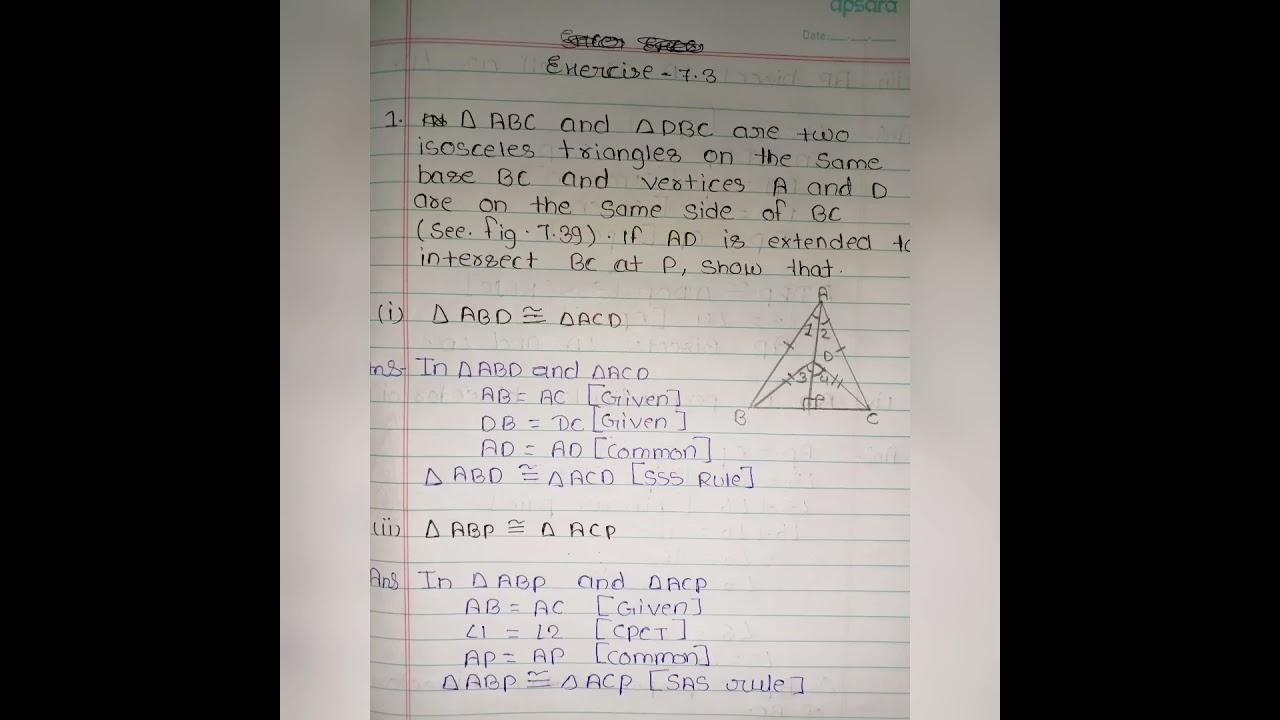 apsara
Date:
Exercise - 7.3
1. Δ ABC and ΔDBC are two
isosceles triangles on the same
base BC and vertices A and D
are on the same side of BC
(See. fig. 7.39). If AD is extended to
intersect BC at P, show that.
(i) Δ ABD ≅ ΔACD
ns- In ΔABD and ΔACD
AB = AC [Given]
DB = DC [Given]
AD = AD [Common]
Δ ABD ≅ ΔACD [SSS Rule]
A
1 2
D
3 4
P
B C
(ii) Δ ABP ≅ Δ ACP
Ans In Δ ABP and ΔACP
AB = AC [Given]
∠1 = ∠2 [CPCT]
AP = AP [Common]
ΔABP ≅ ΔACP [SAS rule]